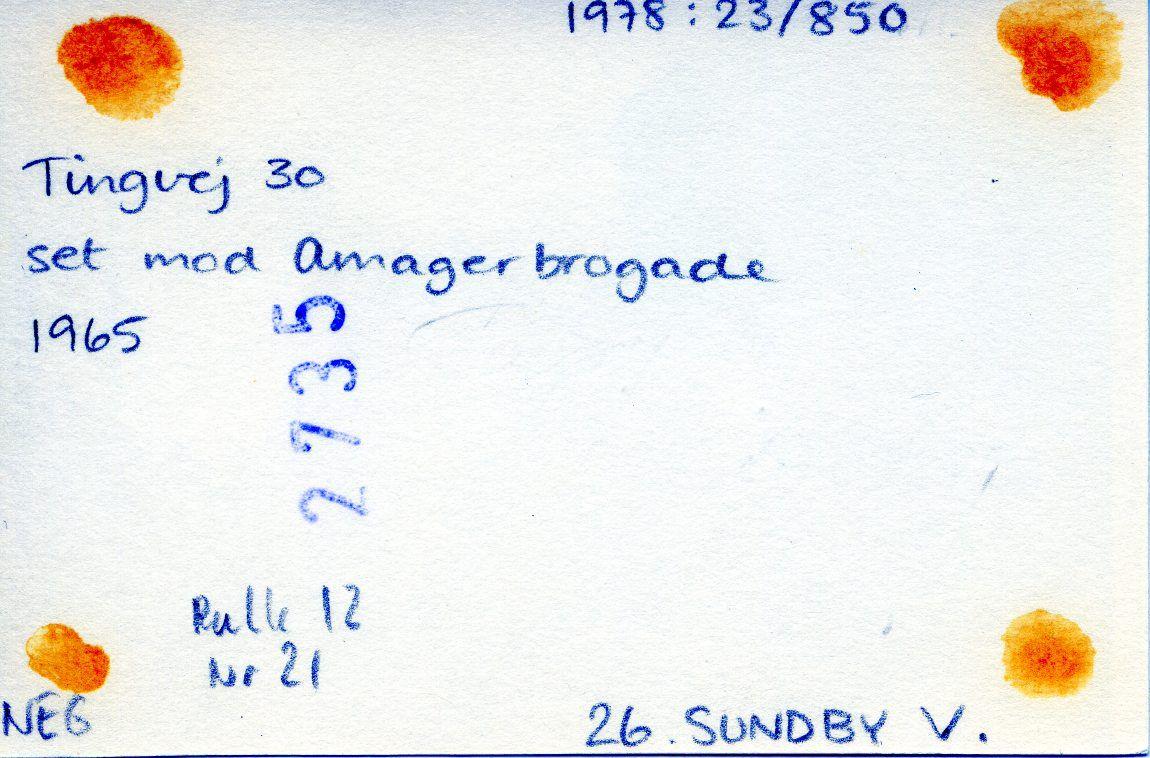 1978:23/850
Tingvej 30
set mod Amagerbrogade
1965
2735
Rulle 12
Nr 21
NEG
26. SUNDBY V.